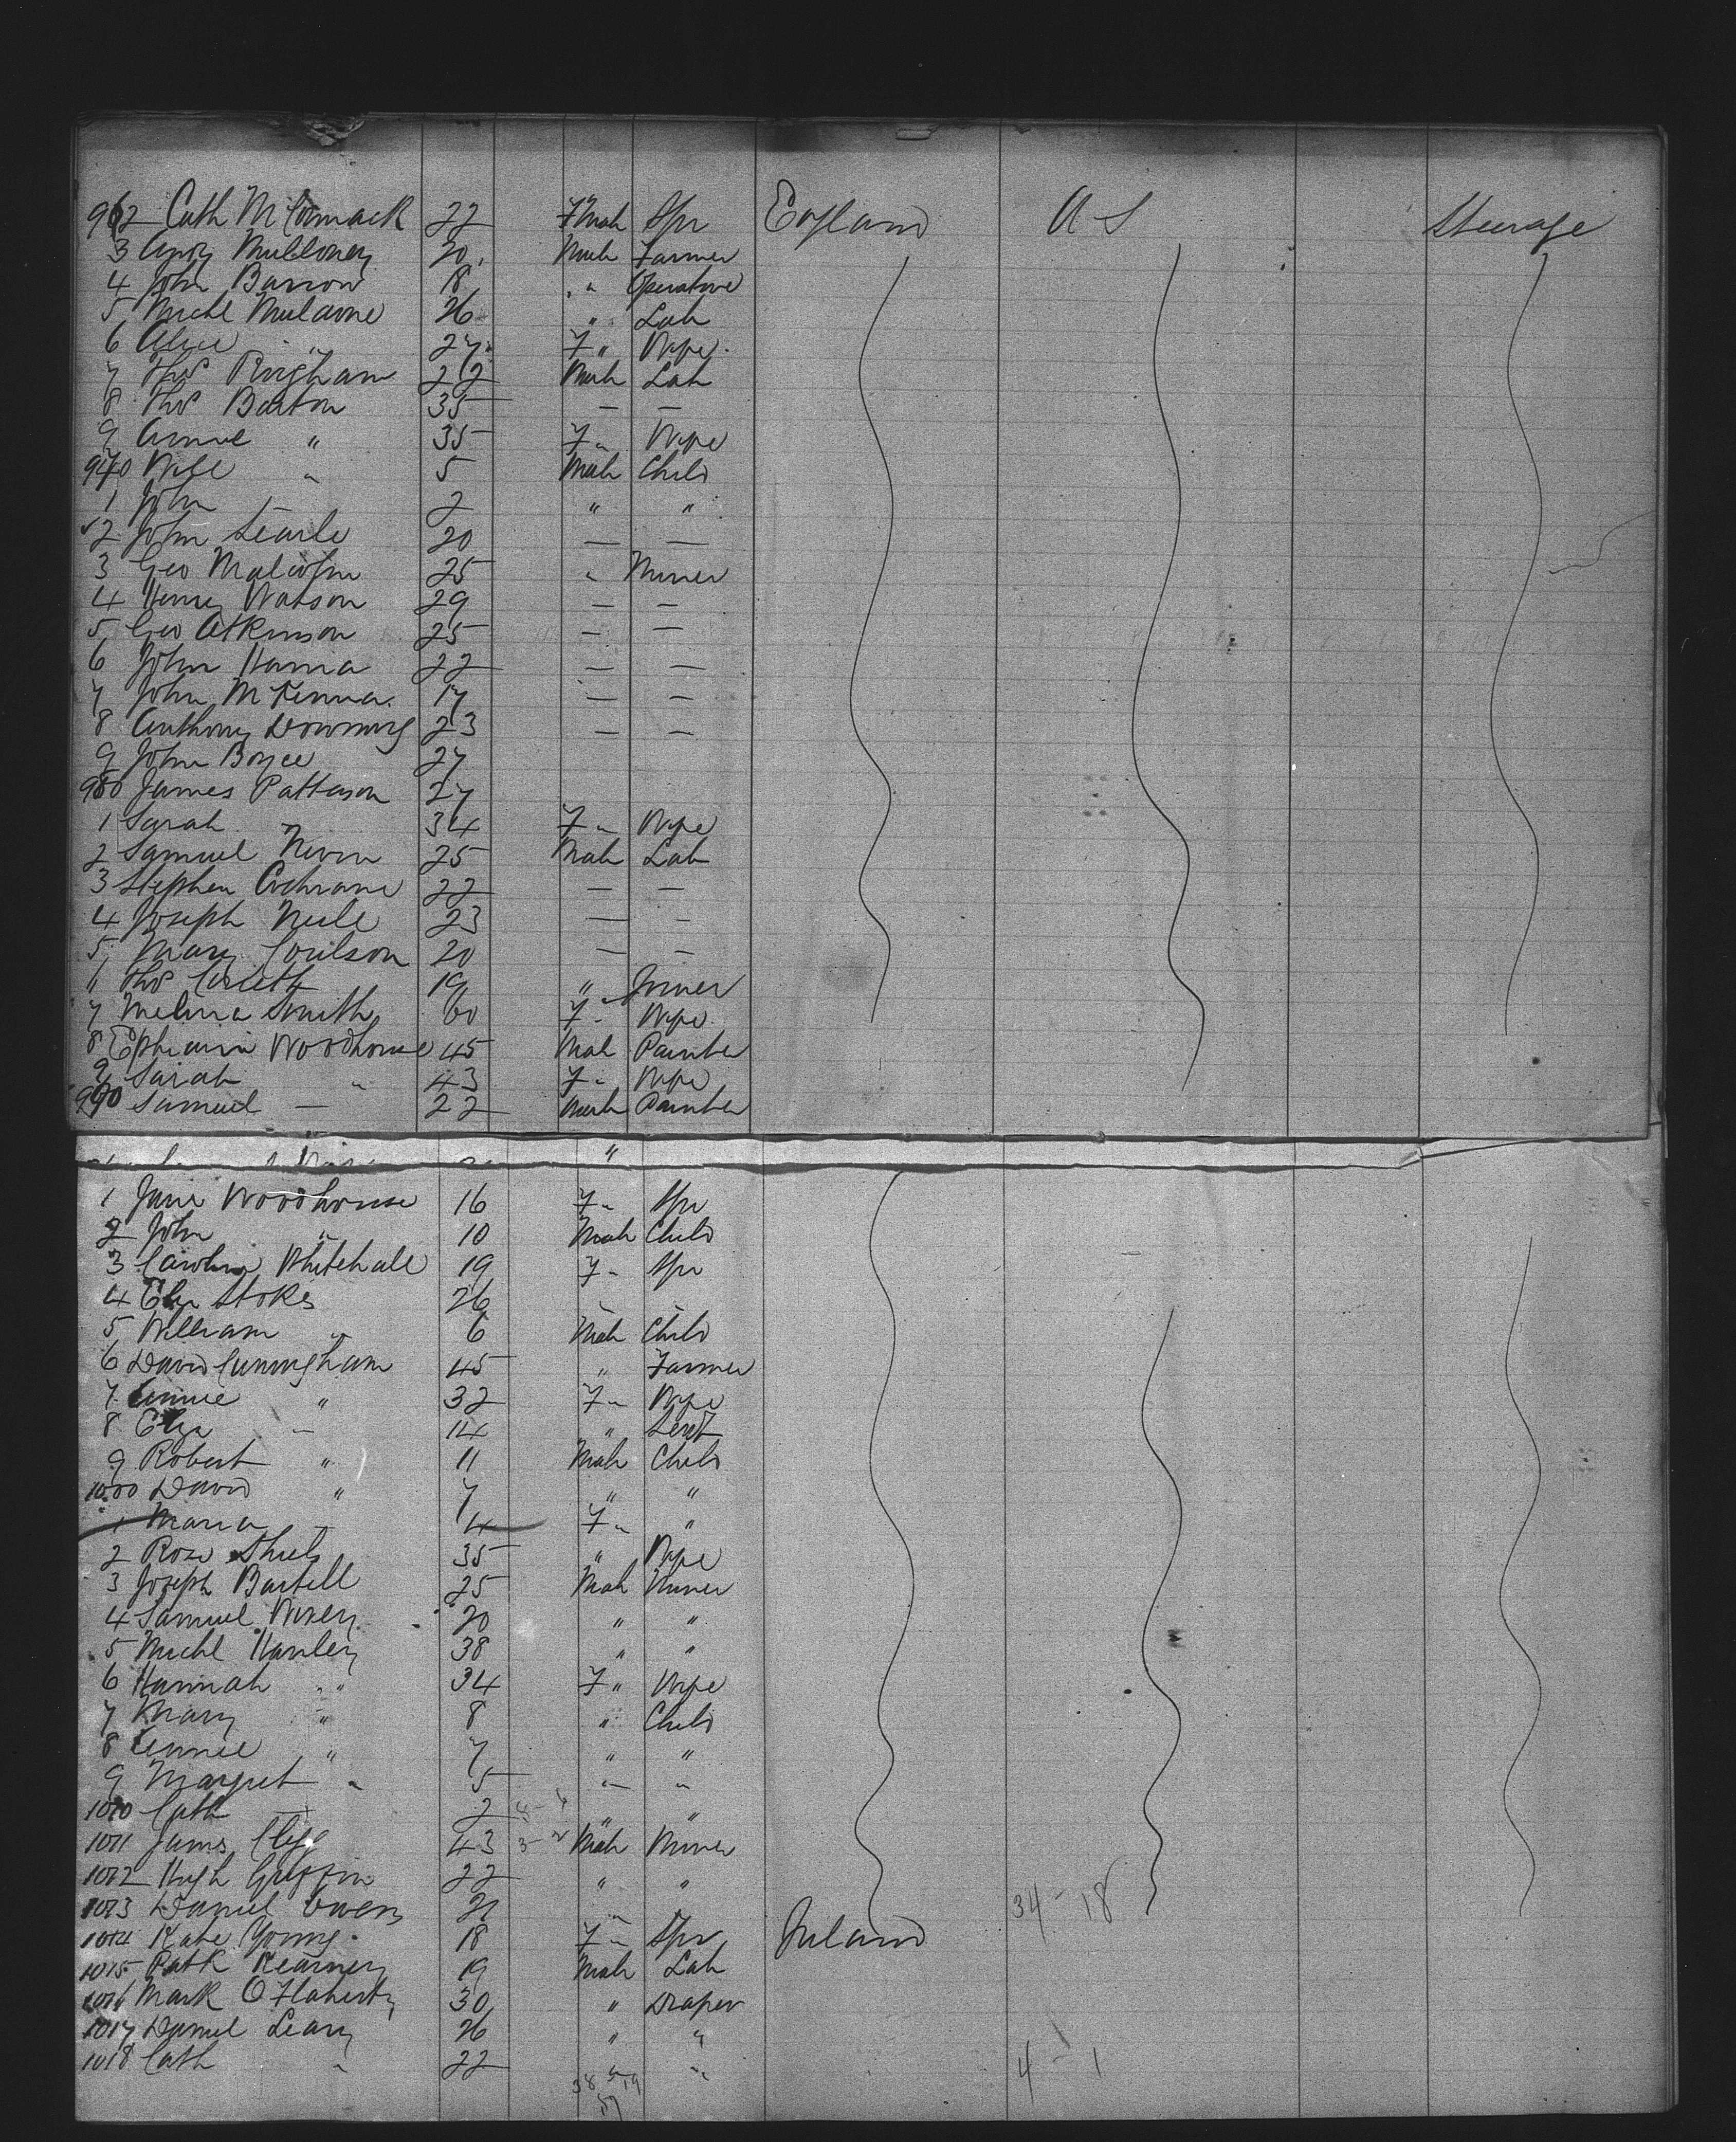 962 Cath McCormack 22 F Male Spr England U S Steerage
3 Andy Mulloney 20 Male Farmer
4 John Barrow 18 " Operative
5 Michl Mularne 26 " Lab
6 Alice " 27 F " Wife
7 Thos Bingham 22 Male Lab
8 Thos Barton 35 — —
9 Annie " 35 F " Wife
970 " 5 Male Child
1 John 2 " "
2 John Searle 20 — —
3 Geo Malcolm 25 " Miner
4 Henry Watson 29 — —
5 Geo Atkinson 25 — —
6 John Hanna 22 — —
7 John McKenna 17 — —
8 Anthony Downing 23 — —
9 John Boyce 27
980 James Patterson 27
1 Sarah " 34 F " Wife
2 Samuel Nivin 25 Male Lab
3 Stephen Cochrane 22 — —
4 Joseph Neile 23 — —
5 Mary Coulson 20 — —
" Thos 19 " Joiner
7 Melina Smith 60 F " Wife
8 Ephraim Woodhouse 45 Male Painter
9 Sarah " 43 F " Wife
990 Samuel — 22 Male Painter
"
1 Jane Woodhouse 16 F " Spr
2 John " 10 Male Child
3 Caroline Whitehall 19 F " Spr
4 Eliz Stokes 26 " "
5 William " 6 Male Child
6 David Cunningham 45 " Farmer
7 Annie " 32 F " Wife
8 Eliza " 14 " Servt
9 Robert " 11 Male Child
1000 David " 7 " "
1 Maria — 4 F " "
2 Rose Shiels 35 " Wife
3 Joseph Bartell 25 Male Miner
4 Samuel 20 " "
5 Michl Hanley 38 " "
6 Hannah " 34 F " Wife
7 Mary " 8 " Child
8 Annie " 7 " "
9 Margret " 5 " "
1010 Cath — 2 " "
1011 James Clegg 43 Male Miner
1012 Hugh Griffin 22 " "
1013 Daniel Owens 21 " 34 - 18
1014 Kate Young 18 F " Spr Ireland
1015 Patk Kearney 19 Male Lab
1016 Mark O Flaherty 30 " Draper
1017 Daniel Leary 26 " "
1018 Cath " 22 " " 4 - 1
38 19
57